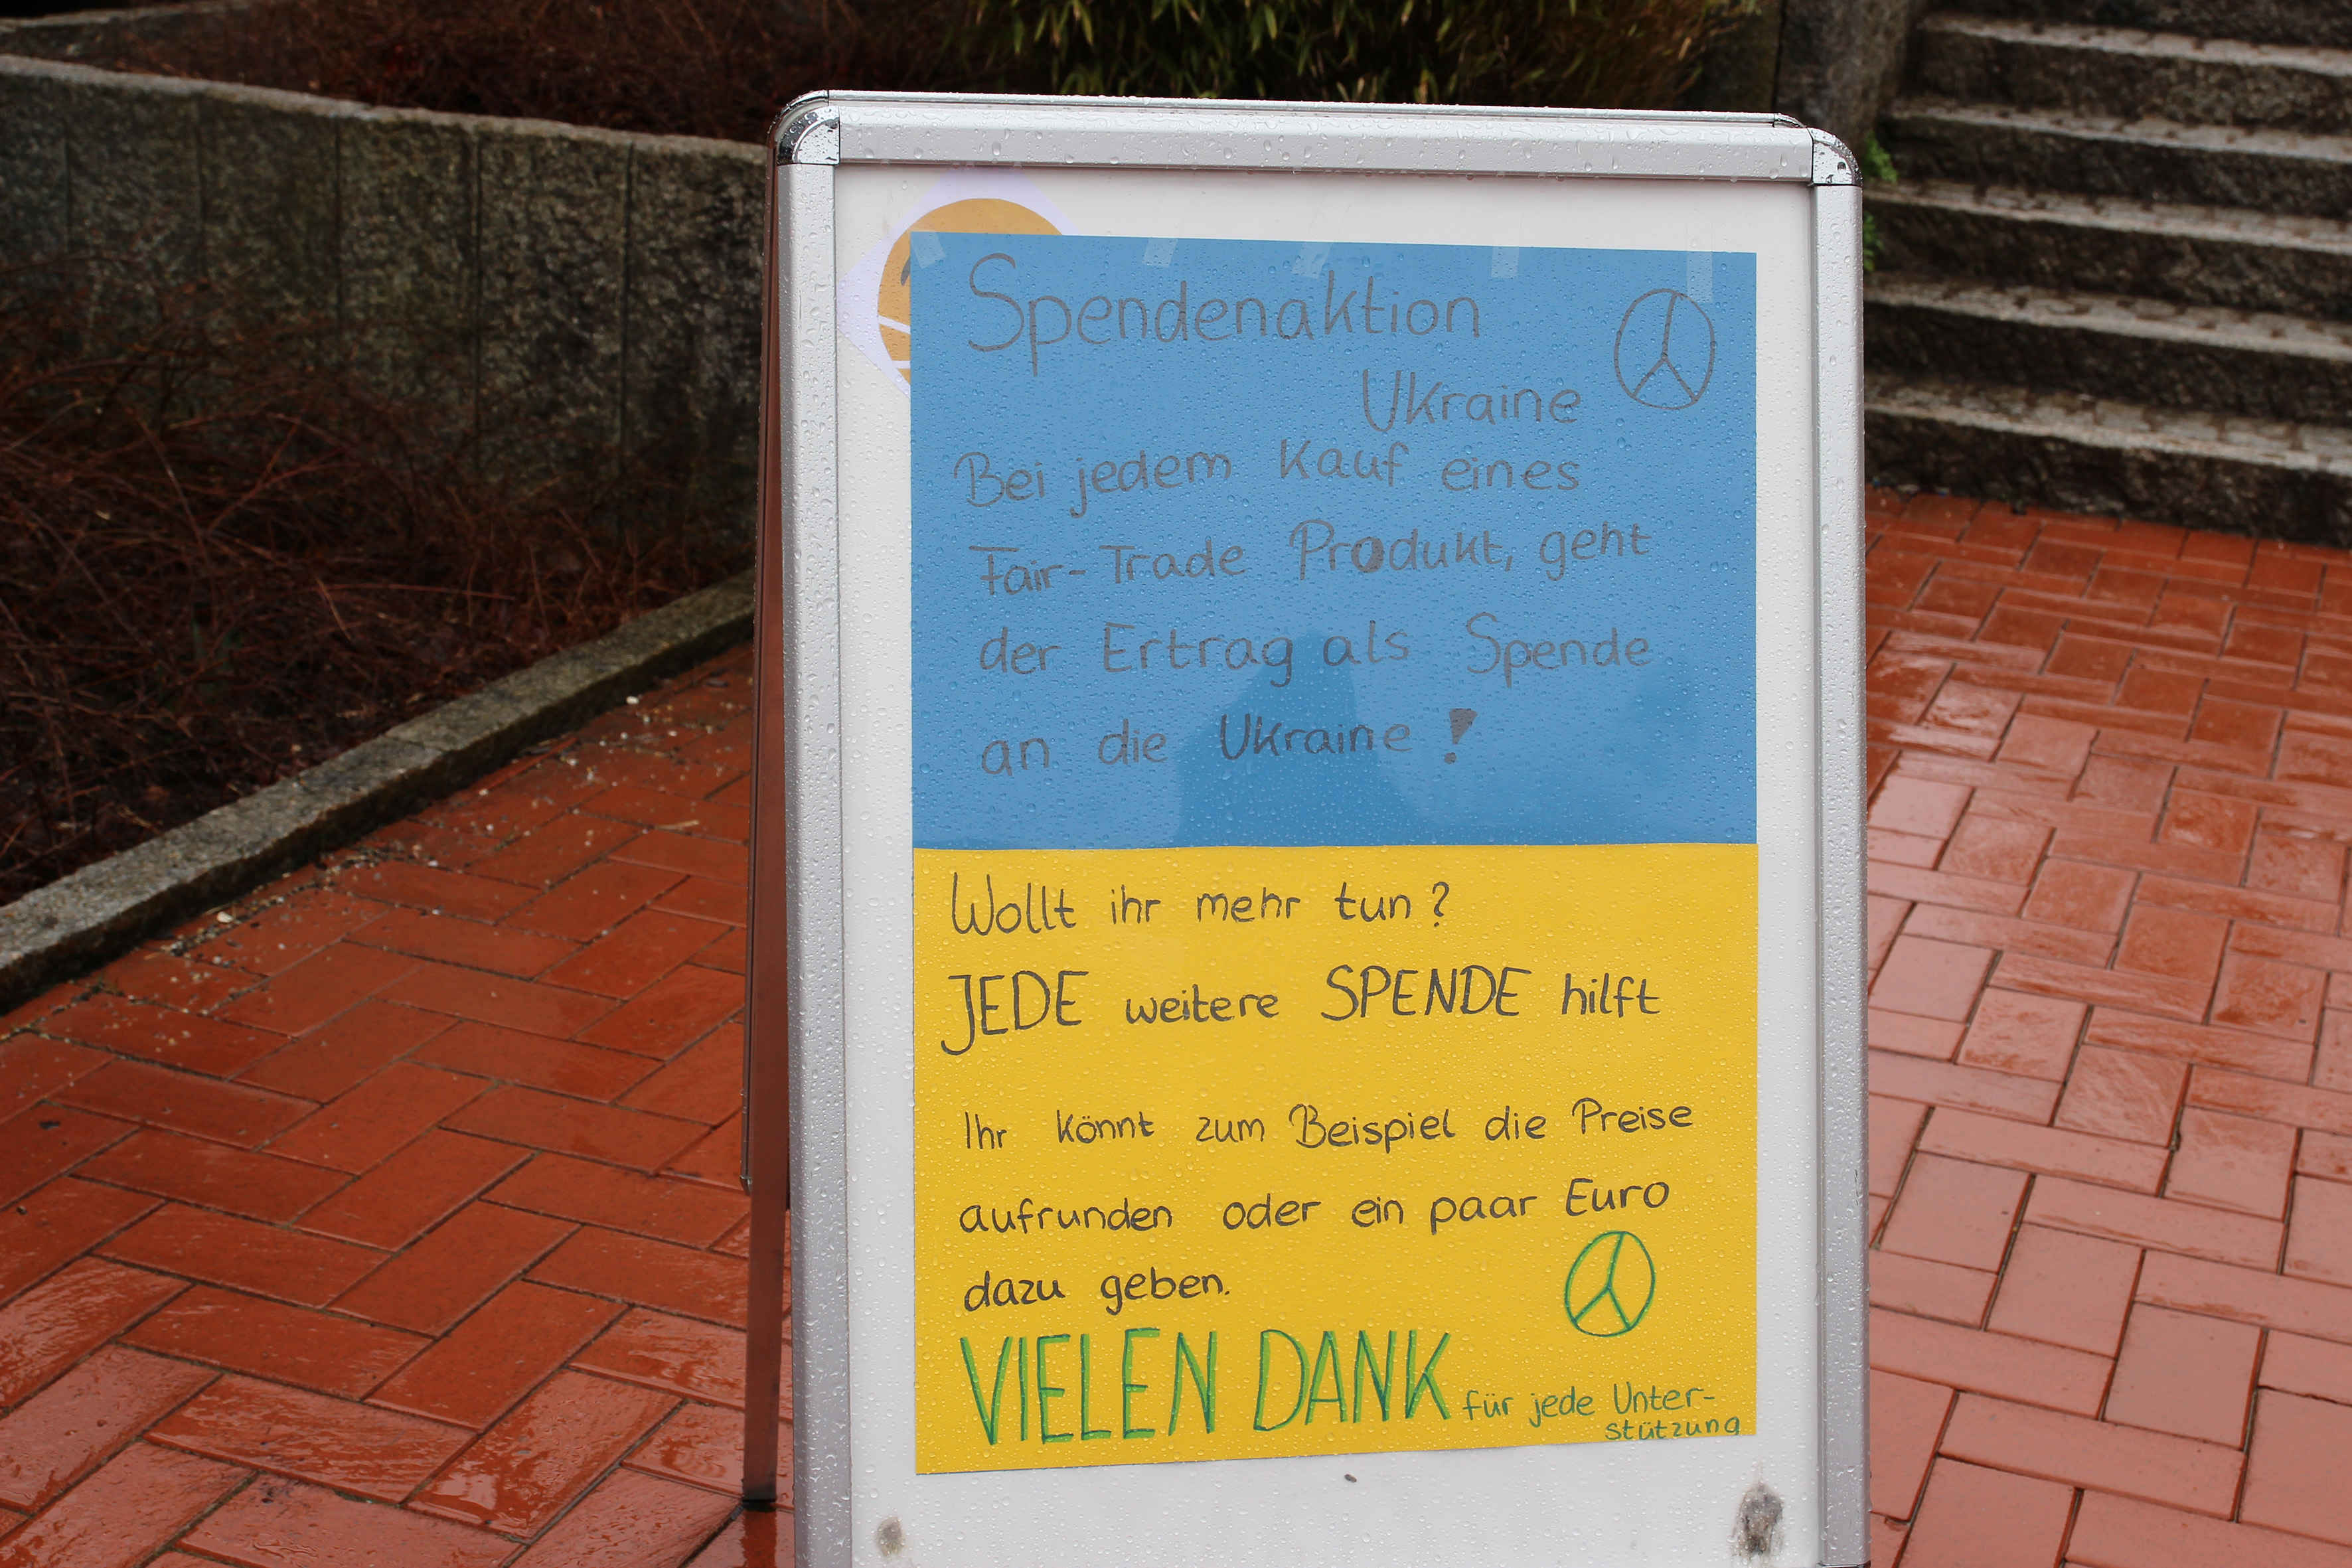 Spendenaktion
Ukraine
Bei jedem Kauf eines
Fair-Trade Produkt, geht
der Ertrag als Spende
an die Ukraine!
Wollt ihr mehr tun?
JEDE weitere SPENDE hilft
Ihr könnt zum Beispiel die Preise
aufrunden oder ein paar Euro
dazu geben.
VIELEN DANK für jede Unter-
stützung